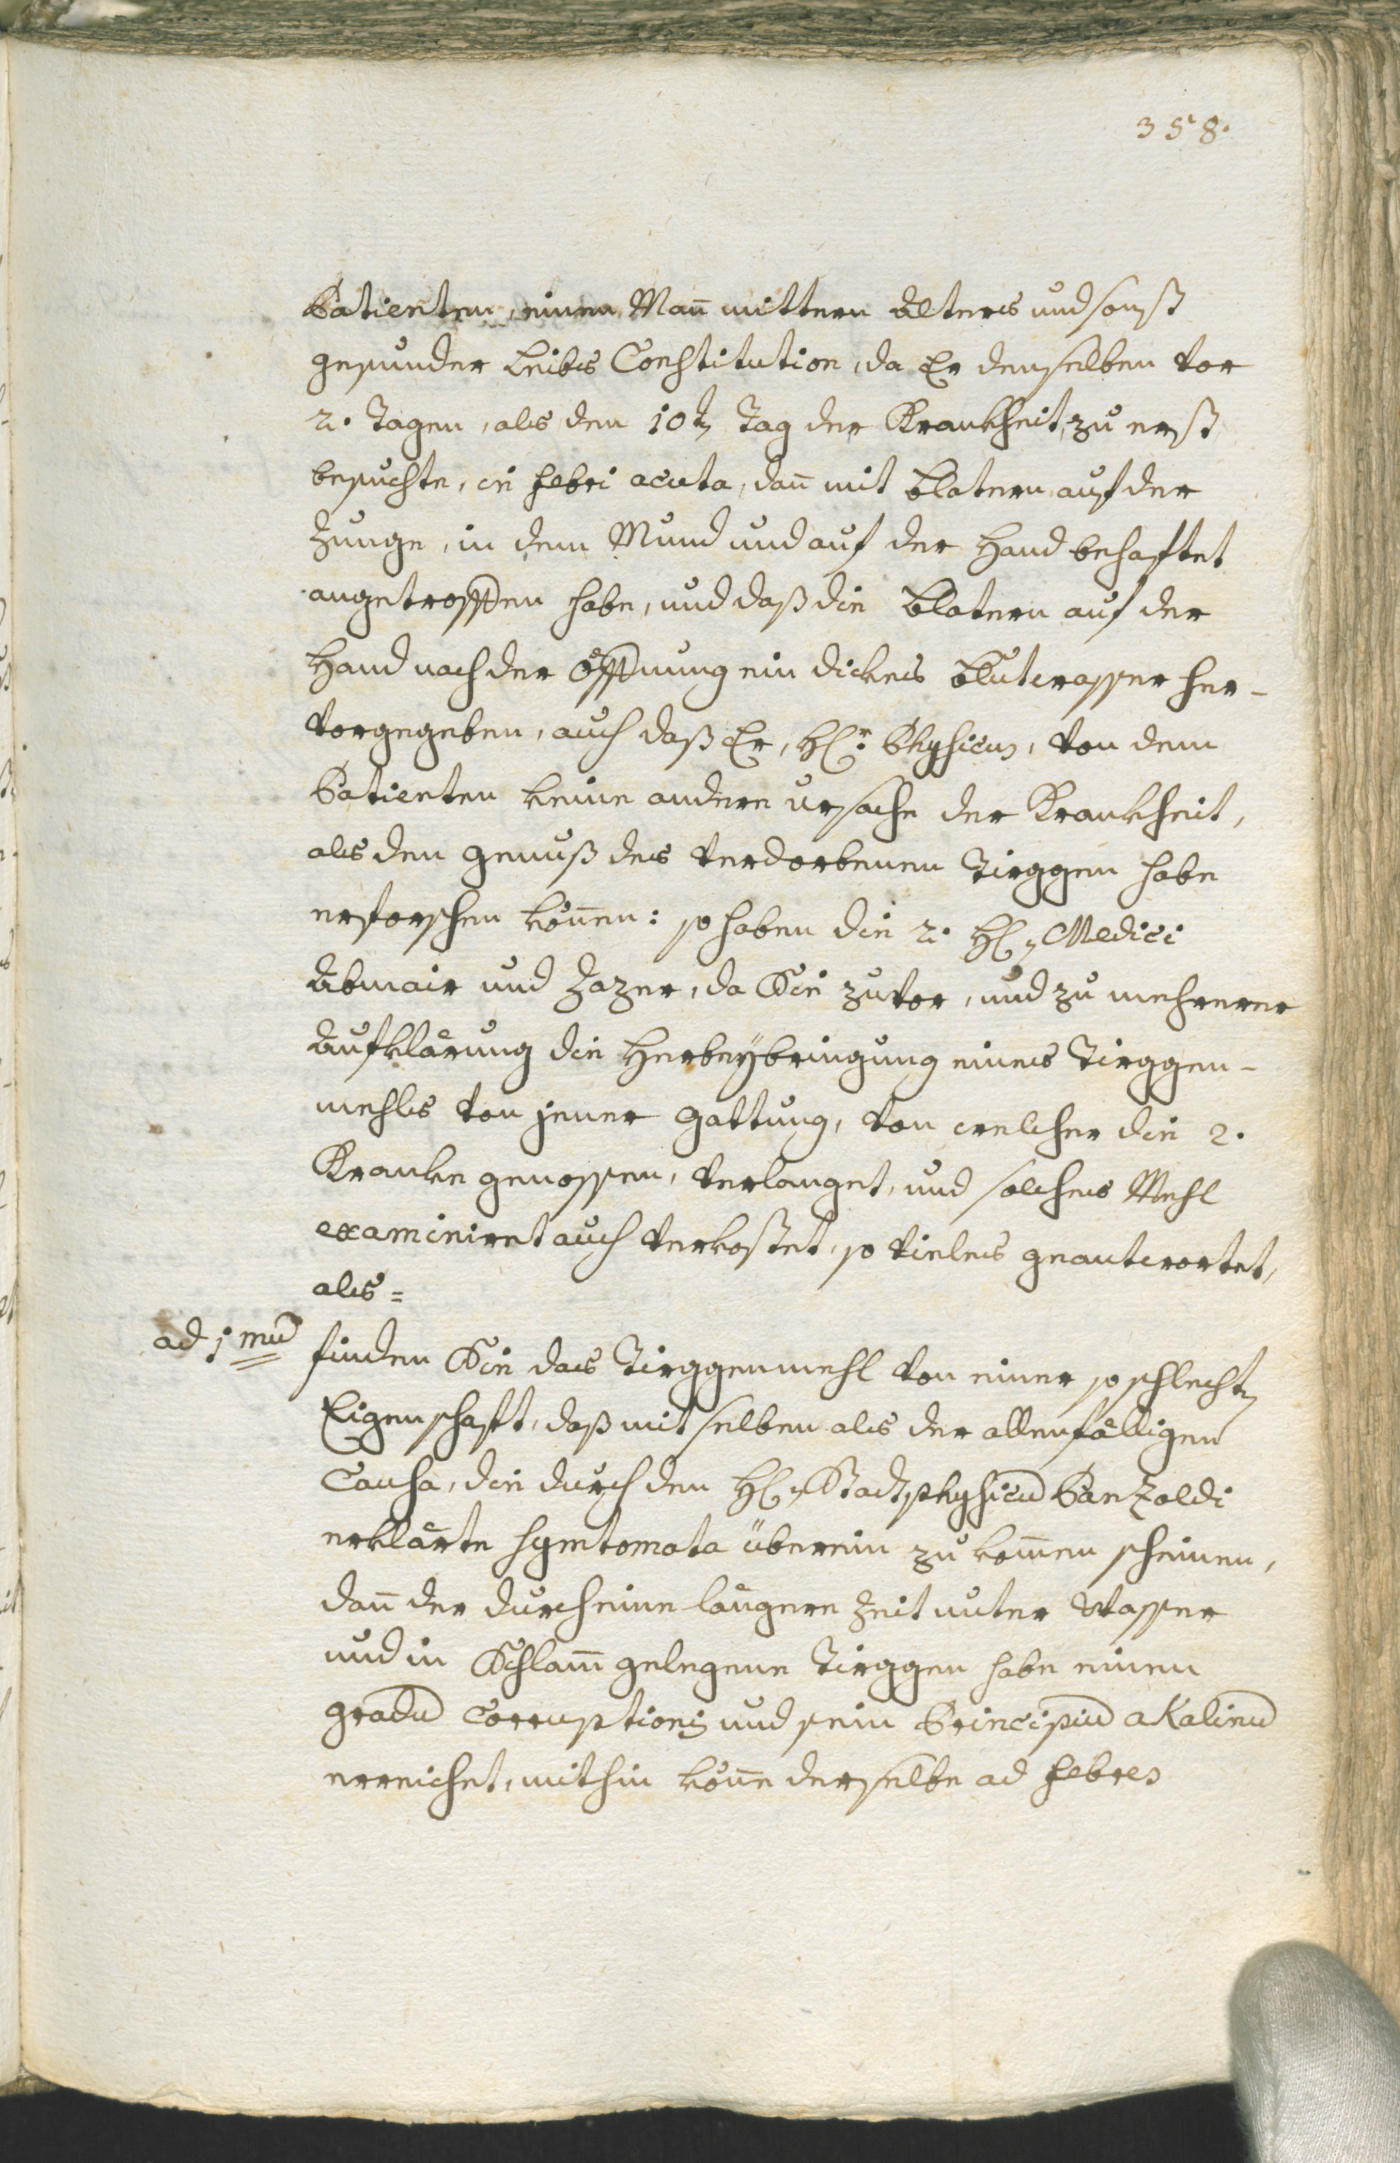 358.
Patienten, einen Mañ mittern Alters und sonst
gesunder Leibs Constitution, da Er denselben vor
2. Tagen, als den 10tn Tag der Krankheit, zu erst
besuchte, in febri acuta, dañ mit Blatern auf der
Zunge, in dem Mund und auf der Hand behaftet
angetroffen habe, und daß die Blatern auf der
Hand nach der öffnung ein dickes Blutwasser her-
vorgegeben, auch daß Er, H:r Physicus, von dem
Patienten keine andere Ursache der Krankheit,
als den genuß des verdorbenen Tirggen habe
erforschen köñen: so haben die 2. H: Medici
Abmair und Zazer, da Sie zuvor, und zu mehrerer
Aufklärung die Herbeybringung eines Tirggen-
mehls von jener gattung, von welcher die 2.
Kranke genossen, verlanget, und solches Mehl
examiniret auch verkostet, so vieles geantwortet,
als=
ad 1mum finden Sie das Tirggenmehl von einer so schlechtn
Eigenschaft, daß mit selben als der allenfälligen
Causa, die durch den H: Stadtphysicum Panzoldi
erklärte Symtomata überein zu komen scheinen,
dañ der durch eine längere Zeit unter Wasser
und in Schlam̃ gelegene Tirggen habe einen
gradum Corruptionis und sein Principium akalinum
erreichet, mithin köñe derselbe ad febres